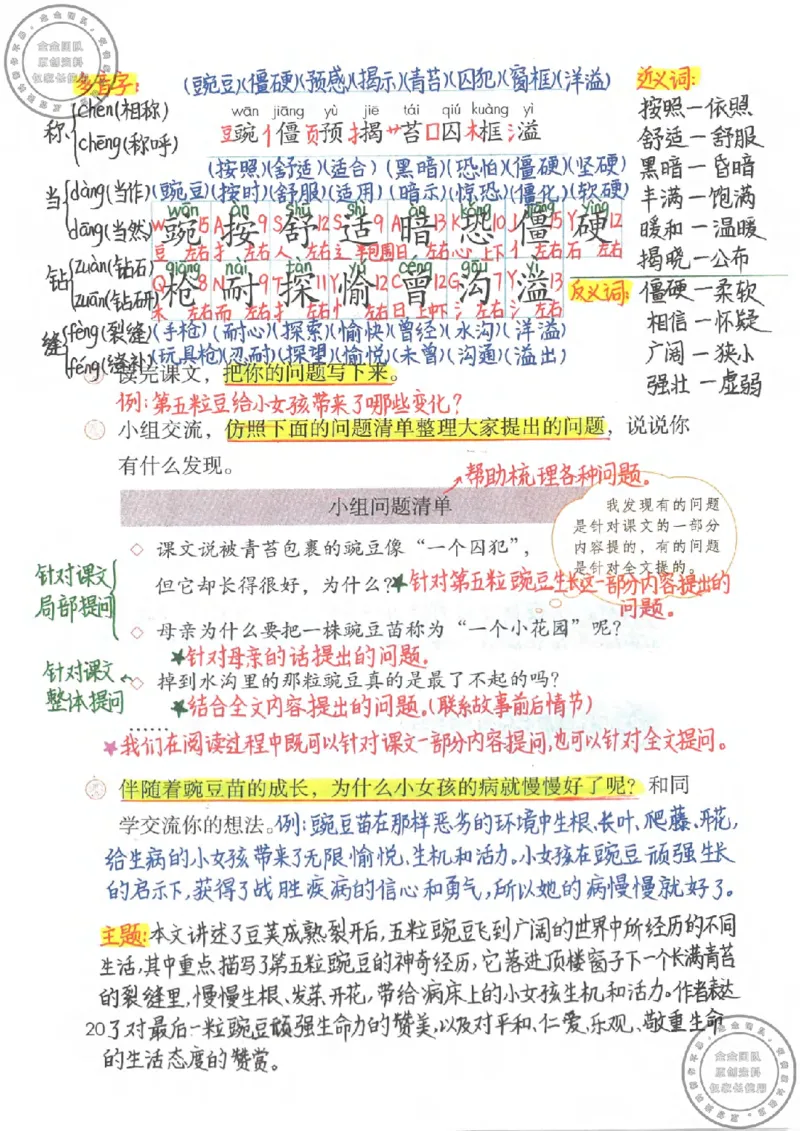 多音字:
称 chèn(相称)
chēng(称呼)
当 dàng(当作)
dāng(当然)
钻 zuàn(钻石)
zuān(钻研)
缝 fèng(裂缝)
féng(缝补)
(豌豆)(僵硬)(预感)(揭示)(青苔)(囚犯)(窗框)(洋溢)
wān jiāng yù jiē tái qiú kuàng yì
豆豌 亻僵 页预 扌揭 艹苔 囗囚 木框 氵溢
(按照)(舒适)(适合)(黑暗)(恐怕)(僵硬)(坚硬)
(豌豆)(按时)(舒服)(适用)(暗示)(惊恐)(僵化)(软硬)
wān àn shū shì àn kǒng jiāng yìng
W 豌 15 A 按 9 S 舒 12 S 适 9 A 暗 13 K 恐 10 J 僵 15 Y 硬 12
豆 左右 扌 左右 人 左右 辶 半包围 日 左右 心 上下 亻 左右 石 左右
qiāng nài tàn yú céng gōu yì
Q 枪 8 N 耐 9 T 探 11 Y 愉 12 C 曾 12 G 沟 7 Y 溢 13
木 左右 而 左右 扌 左右 忄 左右 日 上中下 氵 左右 氵 左右
(手枪)(耐心)(探索)(愉快)(曾经)(水沟)(洋溢)
(玩具枪)(忍耐)(探望)(愉悦)(未曾)(沟通)(溢出)
近义词:
按照—依照
舒适—舒服
黑暗—昏暗
丰满—饱满
暖和—温暖
揭晓—公布
反义词:僵硬—柔软
相信—怀疑
广阔—狭小
强壮—虚弱
读完课文，把你的问题写下来。
例:第五粒豌豆给小女孩带来了哪些变化?
小组交流，仿照下面的问题清单整理大家提出的问题，说说你
有什么发现。
帮助梳理各种问题。
小组问题清单
我发现有的问题
是针对课文的一部分
内容提的，有的问题
是针对全文提的。
针对课文
局部提问
◇ 课文说被青苔包裹的豌豆像“一个囚犯”，
但它却长得很好，为什么?
★针对第五粒豌豆生长这一部分内容提出的
问题。
◇ 母亲为什么要把一株豌豆苗称为“一个小花园”呢?
★针对母亲的话提出的问题.
针对课文
整体提问
◇ 掉到水沟里的那粒豌豆真的是最了不起的吗?
★结合全文内容提出的问题.(联系故事前后情节)
……
★我们在阅读过程中既可以针对课文一部分内容提问,也可以针对全文提问。
伴随着豌豆苗的成长，为什么小女孩的病就慢慢好了呢?和同
学交流你的想法。例:豌豆苗在那样恶劣的环境中生根、长叶、爬藤、开花,
给生病的小女孩带来了无限愉悦、生机和活力。小女孩在豌豆顽强生长
的启示下,获得了战胜疾病的信心和勇气,所以她的病慢慢就好了。
主题:本文讲述了豆荚成熟裂开后,五粒豌豆飞到广阔的世界中所经历的不同
生活,其中重点描写了第五粒豌豆的神奇经历,它落进顶楼窗子下一个长满青苔
的裂缝里,慢慢生根、发芽、开花,带给病床上的小女孩生机和活力。作者表达
20 了对最后一粒豌豆顽强生命力的赞美,以及对平和、仁爱、乐观、敬重生命
的生活态度的赞赏。